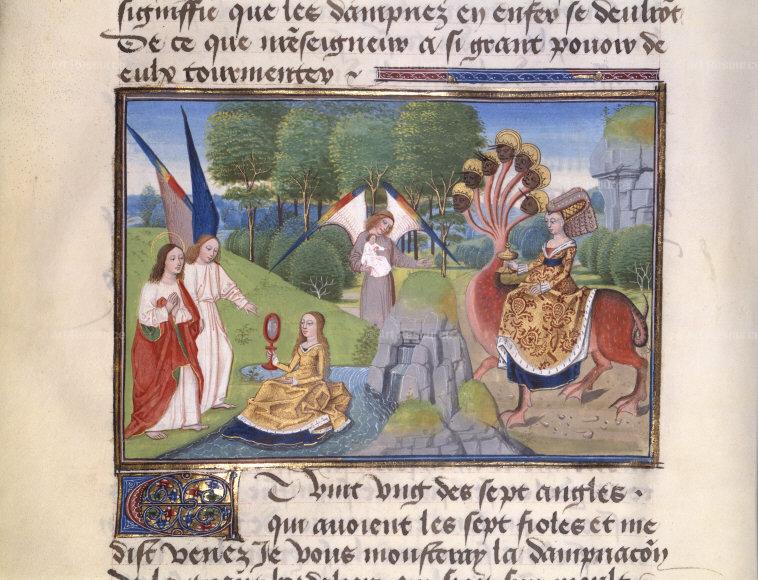 signiffie que les dampnez en enfer se deulrōt
De ce que nr̄eseigneur a si grant pouoir de
eulx tourmenter
Et vint vng des sept angles .
qui auoient les sept fioles et me
dist venez Je vous monsteray la dampnacōn
de la